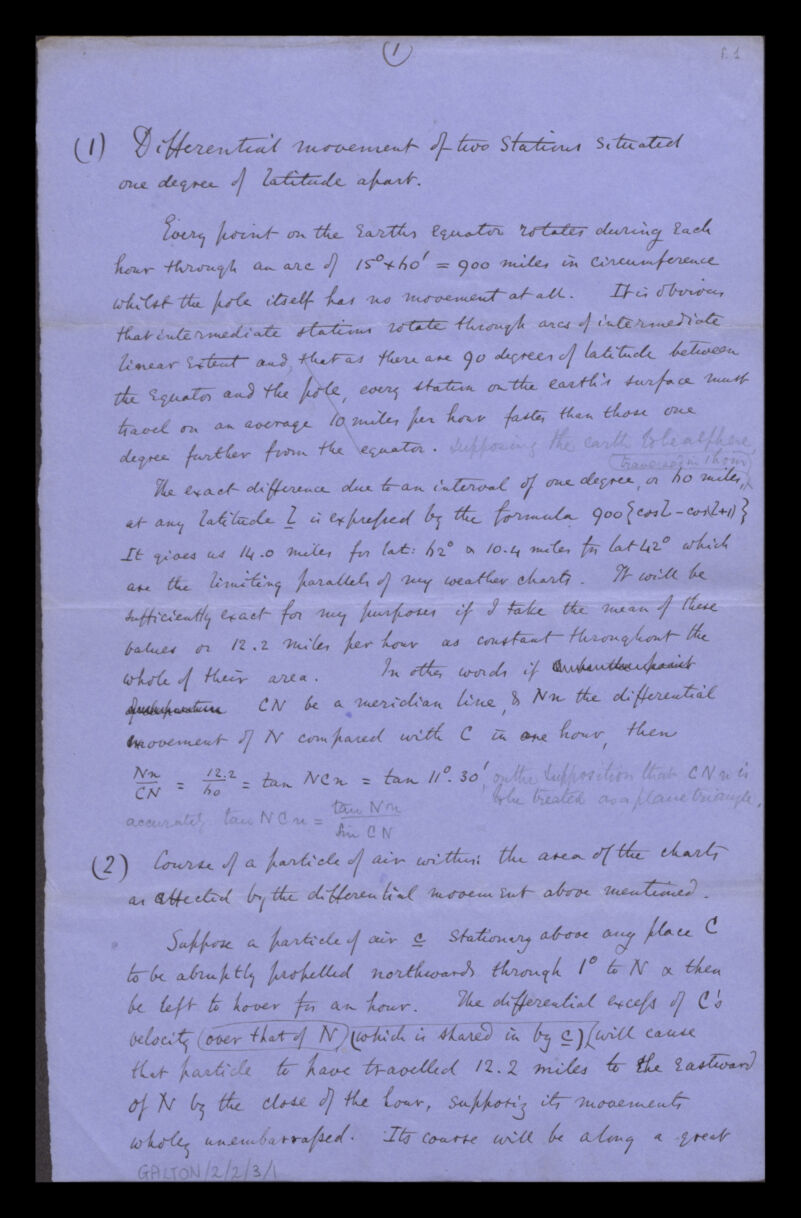 (1)
f. 1
(1) Differential movement of two Stations situated
one degree of latitude apart.
Every point on the Earths Equator rotates during Each
hour through an arc of 15° × 60' = 900 miles in circumference
whilst the pole itself has no movement at all. It is obvious
that intermediate stations rotate through arcs of intermediate
linear Extent and, that as there are 90 degrees of latitude between
the Equator and the pole, every station on the earth's surface must
travel on an average 10 miles per hour faster than those one
degree further from the equator. supposing the earth to be a sphere
(traversed in 1 hour)
The exact difference due to an interval of one degree, or 60 miles,
at any latitude l is expressed by the formula 900 {cos l - cos(l+1)}
It gives us 14.0 miles for lat: 62° & 10.4 miles for lat 42° which
are the limiting parallels of my weather charts. It will be
sufficiently exact for my purposes if I take the mean of these
values or 12.2 miles per hour as constant throughout the
whole of their area. In other words if
CN be a meridian line, & Nn the differential
movement of N compared with C in one hour, then
Nn/CN = 12.2/60 = tan NCn = tan 11°. 30', on the supposition that CNn is
to be treated as a plane triangle.
accurately tan NCn = tan Nn / sin CN
(2) Course of a particle of air within the area of the charts
as affected by the differential movement above mentioned.
Suppose a particle of air c stationary above any place C
to be abruptly propelled northwards through 1° to N & then
be left to hover for an hour. The differential excess of C's
velocity (over that of N) (which is shared in by c) will cause
that particle to have travelled 12.2 miles to the Eastward
of N by the close of the hour, supposing its movements
wholly unembarrassed. Its course will be along a great
GALTON/2/2/3/1